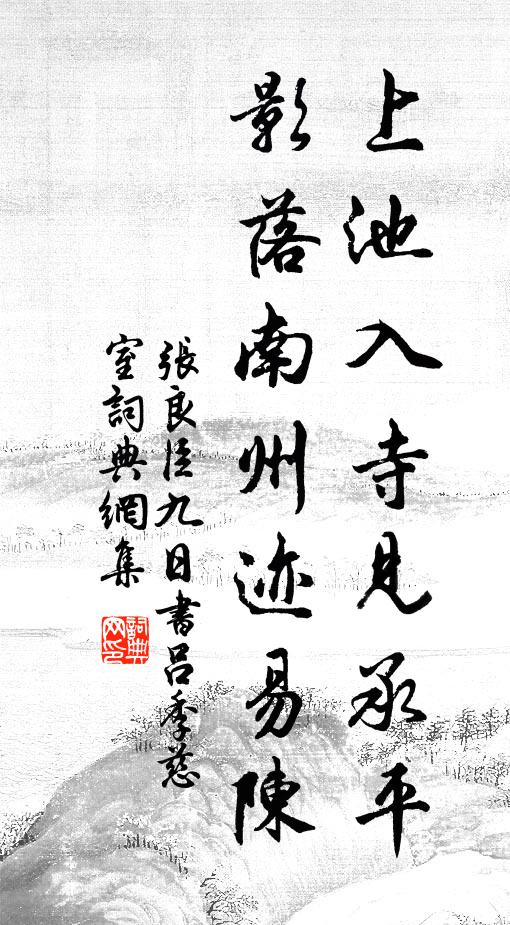 上池入寺見承平
影落南州迹易陳
張良臣九日書呂季慈
室詞典網集
詞典網印